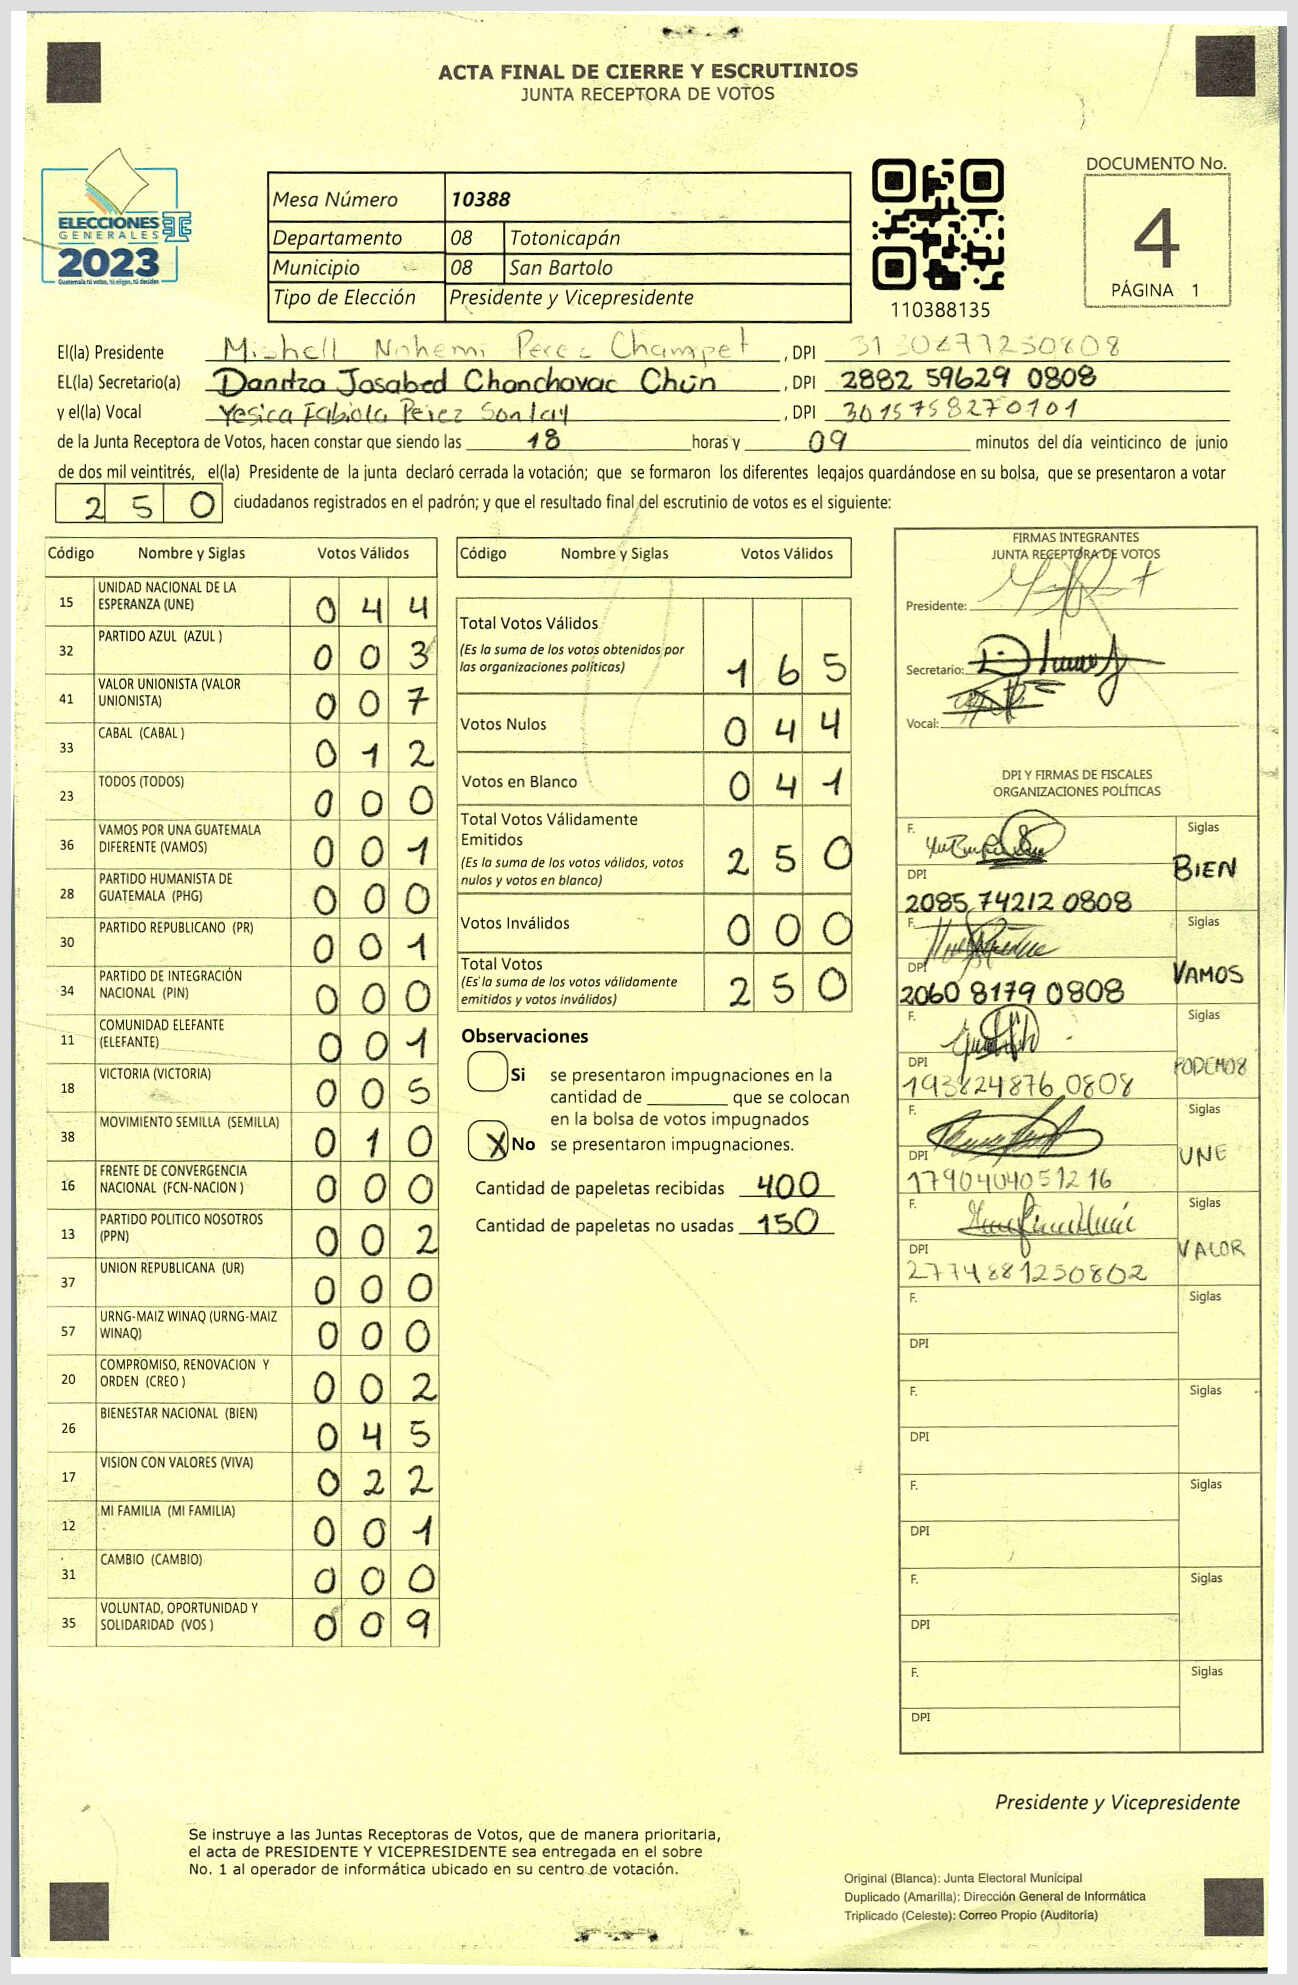 ACTA FINAL DE CIERRE Y ESCRUTINIOS
JUNTA RECEPTORA DE VOTOS
ELECCIONES
GENERALES
2023
Guatemala tú votas, tú eliges, tú decides
Mesa Número 10388
Departamento 08 Totonicapán
Municipio 08 San Bartolo
Tipo de Elección Presidente y Vicepresidente
110388135
DOCUMENTO No.
4
PÁGINA 1
El(la) Presidente Mishell Nohemi Perez Champet , DPI 3130677250808
EL(la) Secretario(a) Danitza Josabed Chonchavac Chún , DPI 2882 59629 0808
y el(la) Vocal Yesica Fabiola Pérez Sontay , DPI 3015758270101
de la Junta Receptora de Votos, hacen constar que siendo las 18 horas y 09 minutos del día veinticinco de junio
de dos mil veintitrés, el(la) Presidente de la junta declaró cerrada la votación; que se formaron los diferentes legajos guardándose en su bolsa, que se presentaron a votar
250 ciudadanos registrados en el padrón; y que el resultado final del escrutinio de votos es el siguiente:
Código Nombre y Siglas Votos Válidos
15 UNIDAD NACIONAL DE LA
ESPERANZA (UNE) 044
32 PARTIDO AZUL (AZUL ) 003
41 VALOR UNIONISTA (VALOR
UNIONISTA) 007
33 CABAL (CABAL ) 012
23 TODOS (TODOS) 000
36 VAMOS POR UNA GUATEMALA
DIFERENTE (VAMOS) 001
28 PARTIDO HUMANISTA DE
GUATEMALA (PHG) 000
30 PARTIDO REPUBLICANO (PR) 001
34 PARTIDO DE INTEGRACIÓN
NACIONAL (PIN) 000
11 COMUNIDAD ELEFANTE
(ELEFANTE) 001
18 VICTORIA (VICTORIA) 005
38 MOVIMIENTO SEMILLA (SEMILLA) 010
16 FRENTE DE CONVERGENCIA
NACIONAL (FCN-NACION ) 000
13 PARTIDO POLITICO NOSOTROS
(PPN) 002
37 UNION REPUBLICANA (UR) 000
57 URNG-MAIZ WINAQ (URNG-MAIZ
WINAQ) 000
20 COMPROMISO, RENOVACION Y
ORDEN (CREO ) 002
26 BIENESTAR NACIONAL (BIEN) 045
17 VISION CON VALORES (VIVA) 022
12 MI FAMILIA (MI FAMILIA) 001
31 CAMBIO (CAMBIO) 000
35 VOLUNTAD, OPORTUNIDAD Y
SOLIDARIDAD (VOS ) 009
Código Nombre y Siglas Votos Válidos
Total Votos Válidos
(Es la suma de los votos obtenidos por
las organizaciones políticas) 165
Votos Nulos 044
Votos en Blanco 041
Total Votos Válidamente
Emitidos
(Es la suma de los votos válidos, votos
nulos y votos en blanco) 250
Votos Inválidos 000
Total Votos
(Es la suma de los votos válidamente
emitidos y votos inválidos) 250
Observaciones
Si se presentaron impugnaciones en la
cantidad de ________ que se colocan
en la bolsa de votos impugnados
X No se presentaron impugnaciones.
Cantidad de papeletas recibidas 400
Cantidad de papeletas no usadas 150
FIRMAS INTEGRANTES
JUNTA RECEPTORA DE VOTOS
Presidente:
Secretario:
Vocal:
DPI Y FIRMAS DE FISCALES
ORGANIZACIONES POLÍTICAS
F. Siglas
DPI BIEN
2085 74212 0808
F. Siglas
DPI VAMOS
2060 8179 0808
F. Siglas
DPI PODEMOS
193824876 0808
F. Siglas
DPI UNE
1790404051216
F. Siglas
DPI VALOR
2774881250802
F. Siglas
DPI
F. Siglas
DPI
F. Siglas
DPI
F. Siglas
DPI
F. Siglas
DPI
Presidente y Vicepresidente
Se instruye a las Juntas Receptoras de Votos, que de manera prioritaria,
el acta de PRESIDENTE Y VICEPRESIDENTE sea entregada en el sobre
No. 1 al operador de informática ubicado en su centro de votación.
Original (Blanca): Junta Electoral Municipal
Duplicado (Amarilla): Dirección General de Informática
Triplicado (Celeste): Correo Propio (Auditoría)